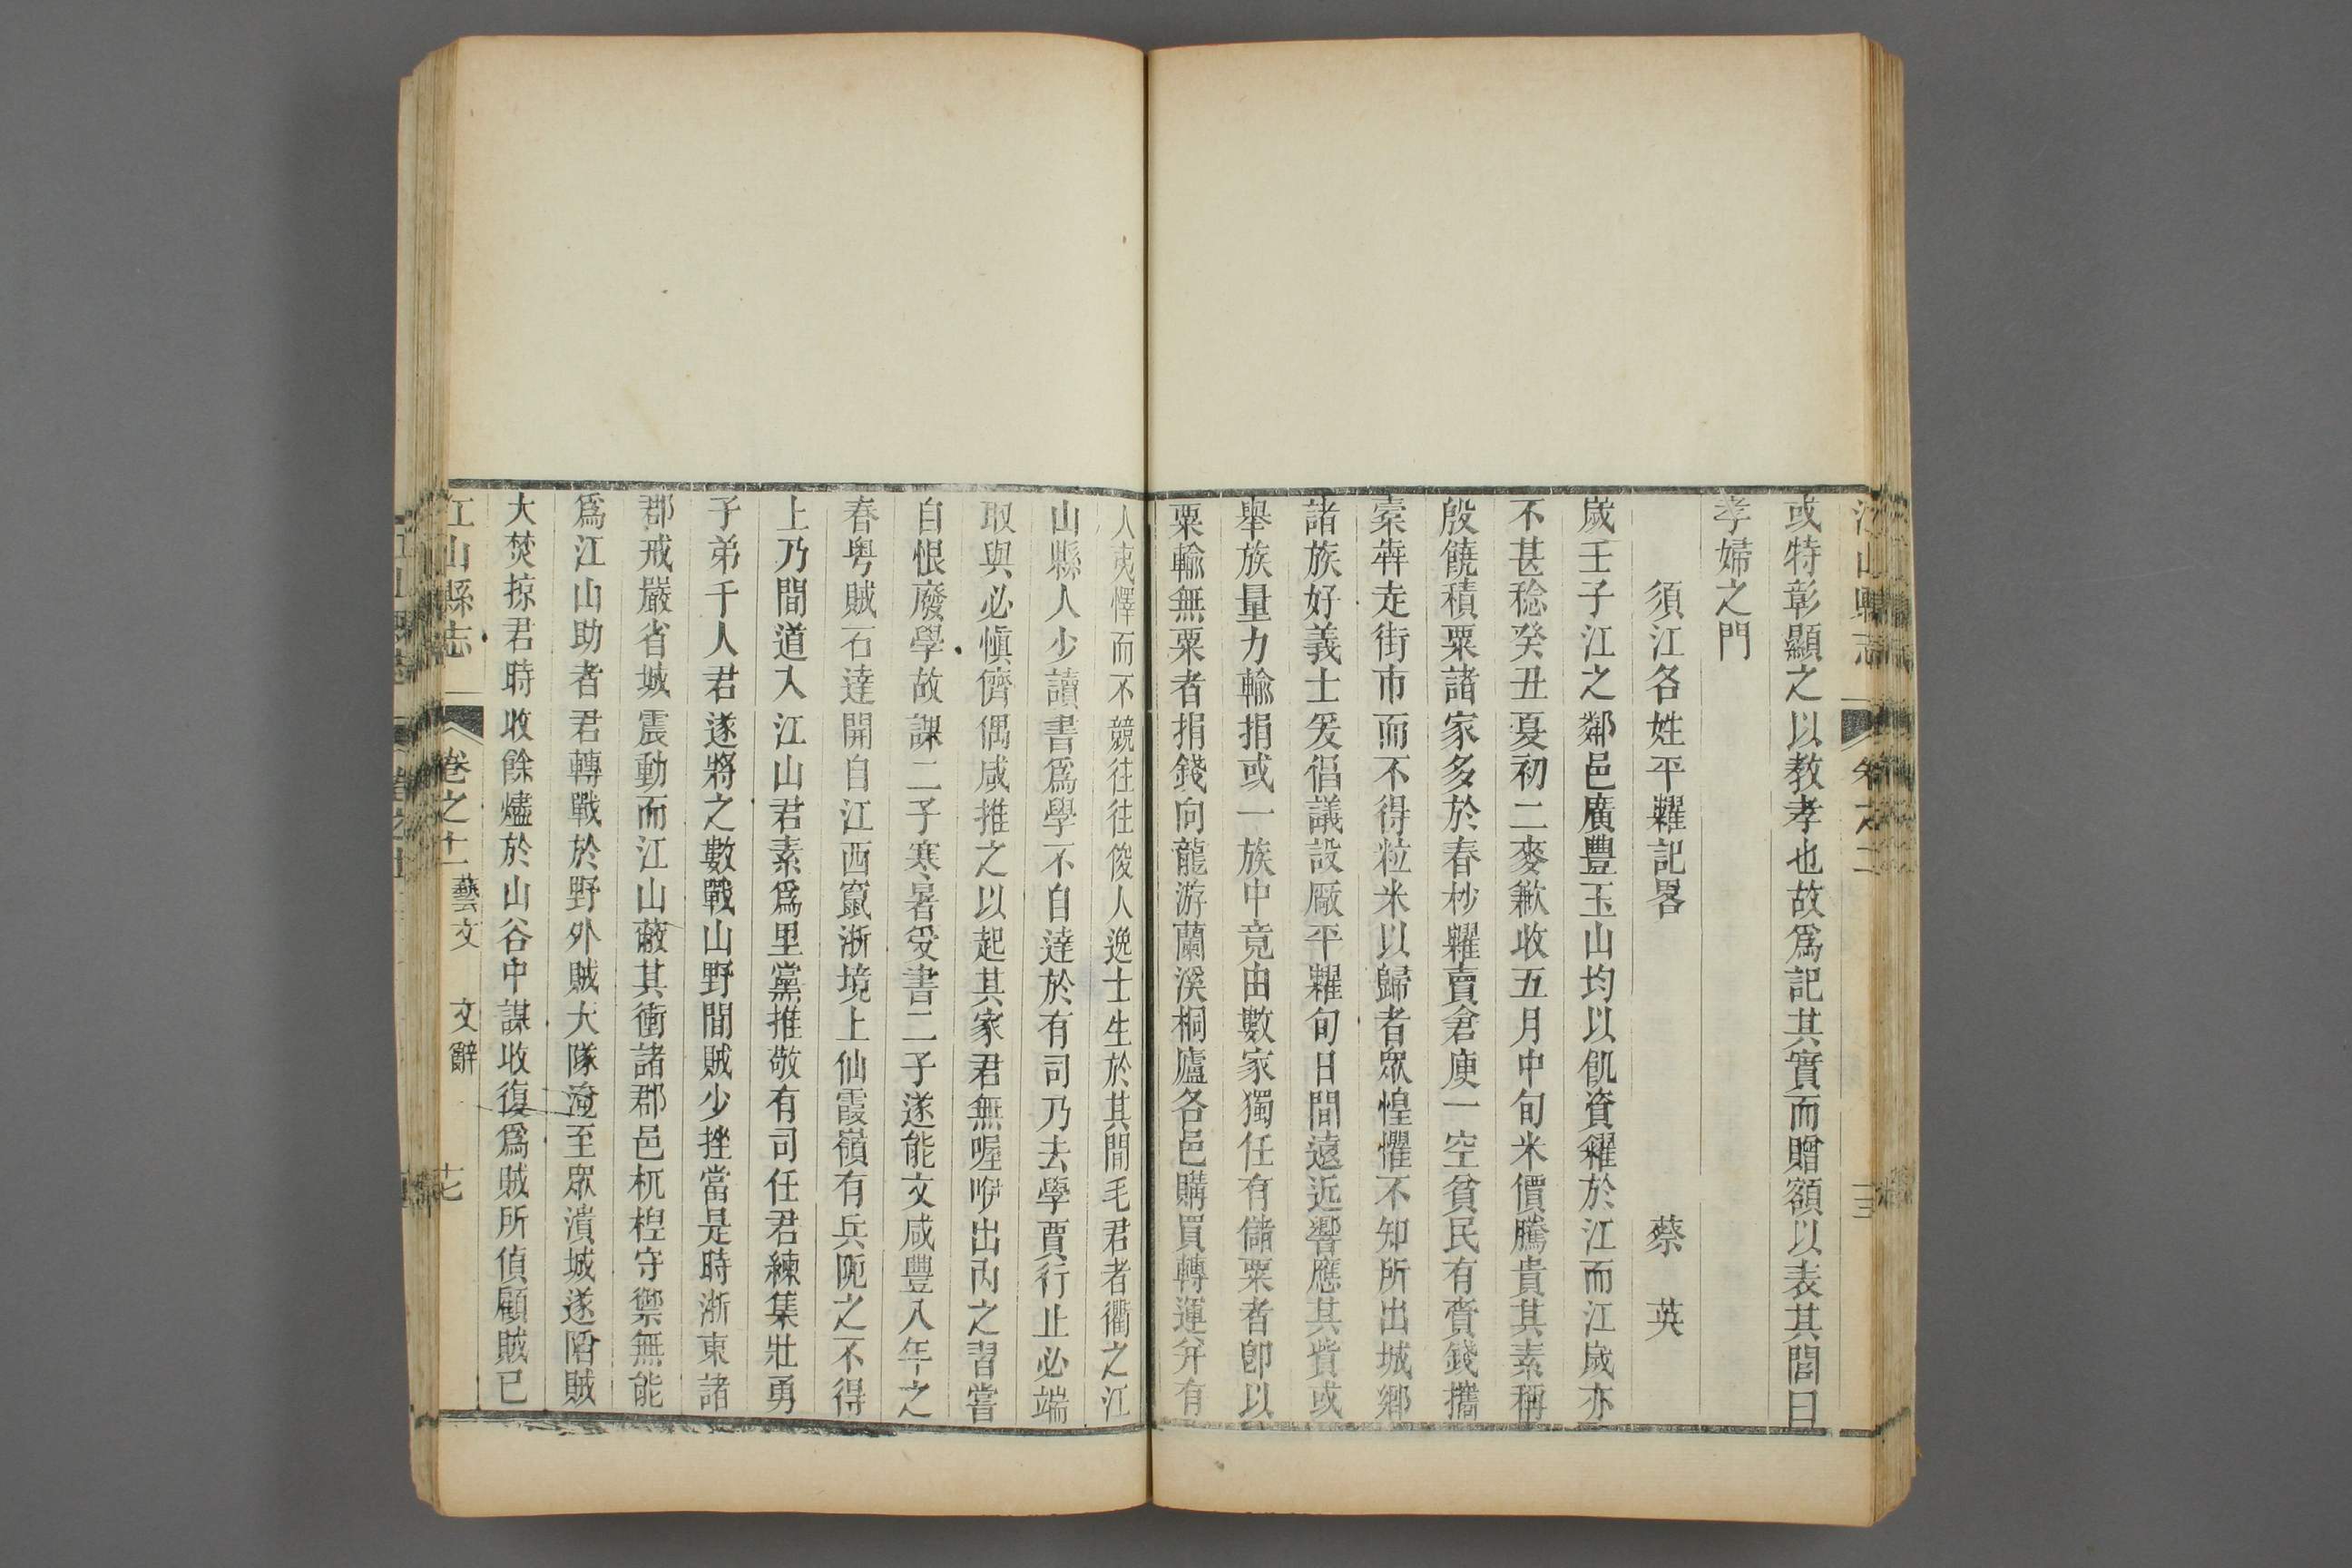 或特彰顯之以教孝也故爲記其實而贈額以表其閭曰
孝婦之門
須江各姓平糶記畧　蔡　英
歲壬子江之鄰邑廣豐玉山均以飢資糴於江而江歲亦
不甚稔癸丑夏初二麥歉收五月中旬米價騰貴其素稱
殷饒積粟諸家多於春杪糶賣倉庾一空貧民有賫錢攜
橐奔走街市而不得粒米以歸者眾惶懼不知所出城鄉
諸族好義士爰倡議設厰平糶旬日間遠近響應其貲或
舉族量力輸捐或一族中竟由數家獨任有儲粟者卽以
粟輸無粟者捐錢向龍游蘭溪桐廬各邑購買轉運幷有
人夷懌而不競往往俊人逸士生於其間毛君者衢之江
山縣人少讀書爲學不自達於有司乃去學賈行止必端
取與必愼儕偶咸推之以起其家君無喔咿出內之習嘗
自恨廢學故課二子寒暑受書二子遂能文咸豐八年之
春粤賊石達開自江西竄浙境上仙霞嶺有兵阨之不得
上乃間道入江山君素爲里黨推敬有司任君練集壯勇
子弟千人君遂將之數戰山野間賊少挫當是時浙東諸
郡戒嚴省城震動而江山蔽其衝諸郡邑杌棿守禦無能
爲江山助者君轉戰於野外賊大隊淹至眾潰城遂陷賊
大焚掠君時收餘燼於山谷中謀收復爲賊所偵顧賊已
江山縣志　卷之十一　藝文　文辭　十七